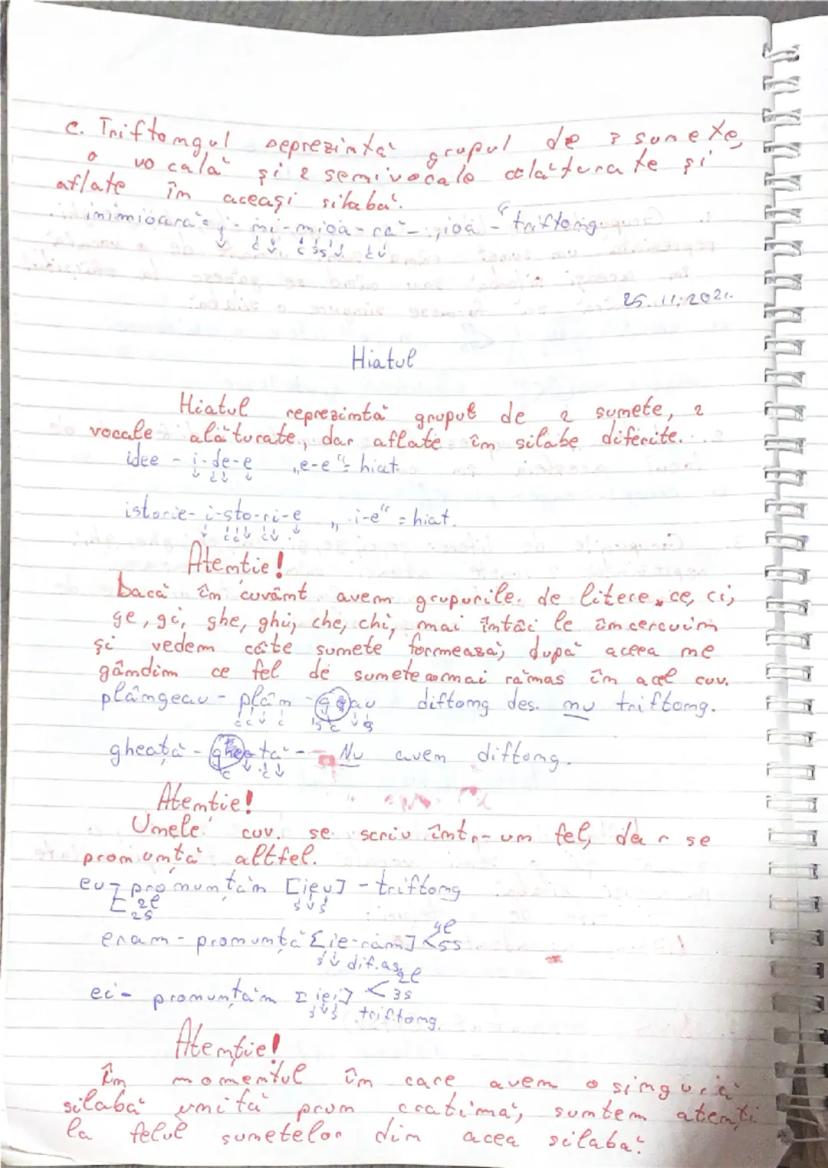 c. Triftongul reprezintă grupul de 3 sunete,
o vocală și 2 semivocale alăturate și
aflate în aceași silabă.
inimioară = i - ni - mioa - ră - „ioa - “ triftong.
v c v c s s v c v
25.11.2021.
Hiatul
Hiatul reprezintă grupul de 2 sunete, 2
vocale alăturate, dar aflate în silabe diferite.
idee - i-de-e „e-e“ = hiat.
v c v v
istorie - i-sto-ri-e „i-e“ = hiat.
v c c v c v v
Atenție!
Dacă în cuvânt avem grupurile de litere ce, ci,
ge, gi, ghe, ghi, che, chi, mai întâi le încercuim
și vedem câte sunete formează, după aceea ne
gândim ce fel de sunete au mai rămas în acel cuv.
plângeau - plân - geau diftong des. nu triftong.
c c v c c v s
gheață - ghea-ță - Nu avem diftong.
c v c v
Atenție!
Unele cuv. se scriu într-un fel, dar se
pronunță altfel.
eu - pronunțăm [ieu] - triftong
2l s v s
2s
4l
eram - pronunță [ie-ram] < 5s
s v dif. as.
2l
ei - pronunțăm [iei] < 3s
s v s triftong.
Atenție!
În momentul în care avem o singură
silabă unită prin cratimă, suntem atenți
la felul sunetelor din acea silabă.